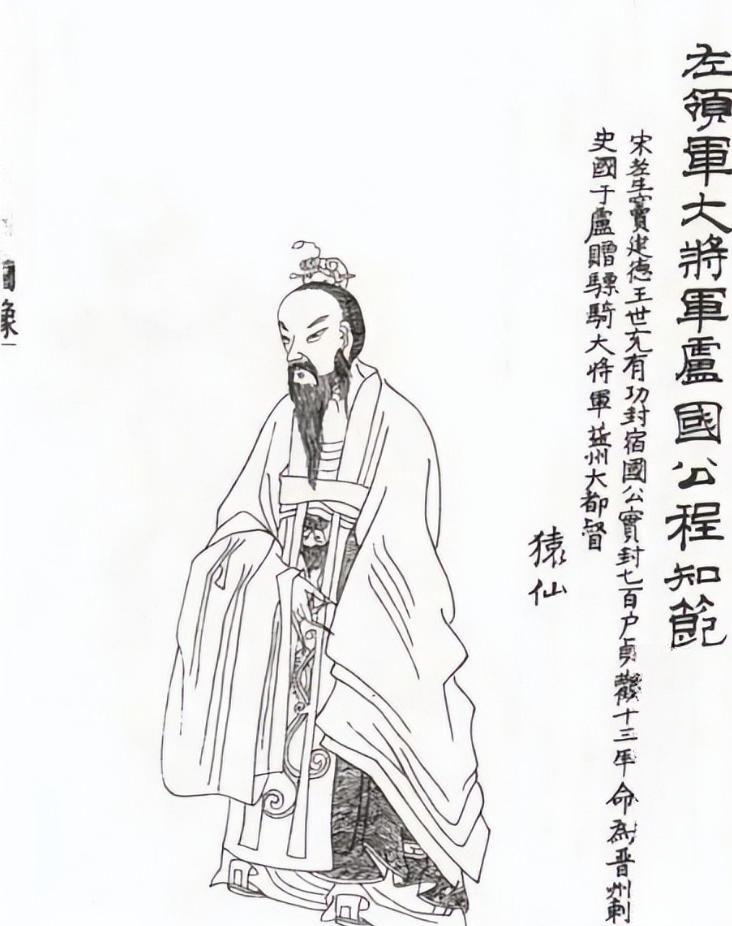 左領軍大將軍盧國公程知節
宋老生竇建德王世充有功封宿國公實封七百户貞觀十三年命為晋州刺
史國于盧贈驃騎大將軍益州大都督
猿仙